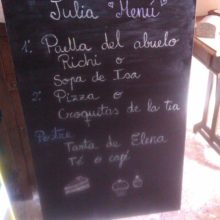 Julia "Menú"
1º: Paella del abuelo
Richi o
Sopa de Isa
2º: Pizza o
Croquetas de la tía
Postre
Tarta de Elena
Té o café